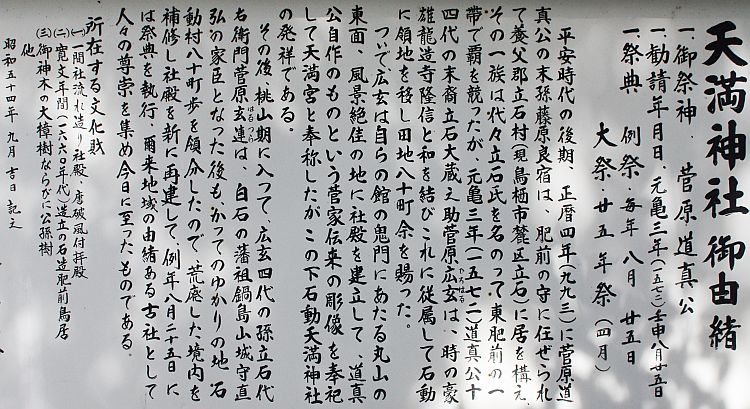 天満神社御由緒
一、御祭神、菅原道真公
一、勧請年月日、元亀三年(一五七二)壬申八月廿五日
一、祭典 例祭・毎年八月廿五日
大祭 廿五年祭(四月)
平安時代の後期、正暦四年(九九三)に菅原道
真公の末孫藤原良宿は、肥前の守に任ぜられ
て養父郡立石村(現鳥栖市麓区立石)に居を構え、
その一族は代々立石氏を名のって東肥前の一
帯で覇を競ったが、元亀三年(一五七二)道真公十
四代の末裔立石大蔵之助菅原広玄は、時の豪
雄龍造寺隆信と和を結びこれに従属して石動
に領地を移し田地八十町余を賜った。
ついで広玄は自らの館の鬼門にあたる丸山の
東面、風景絶佳の地に社殿を建立して、道真
公自作のものという菅家伝来の彫像を奉祀
して天満宮と奉称したがこの下石動天満神社
の発祥である。
その後、桃山期に入って、広玄四代の孫立石代
右衛門菅原玄連は、白石の藩祖鍋島山城守直
弘の家臣となった後も、かってのゆかりの地石
動村八十町歩を領分したので、荒廃した境内を
補修し社殿を新に再建して、例年八月二十五日に
は祭典を執行、爾来地域の由緒ある古社として
人々の尊崇を集め今日に至ったものである。
所在する文化財
(一)一間社流れ造り社殿、唐破風付拝殿
(二)寛文年間(一六六〇年代)造立の石造肥前鳥居
(三)御神木の大樟樹ならびに公孫樹
他
昭和五十四年九月吉日記之